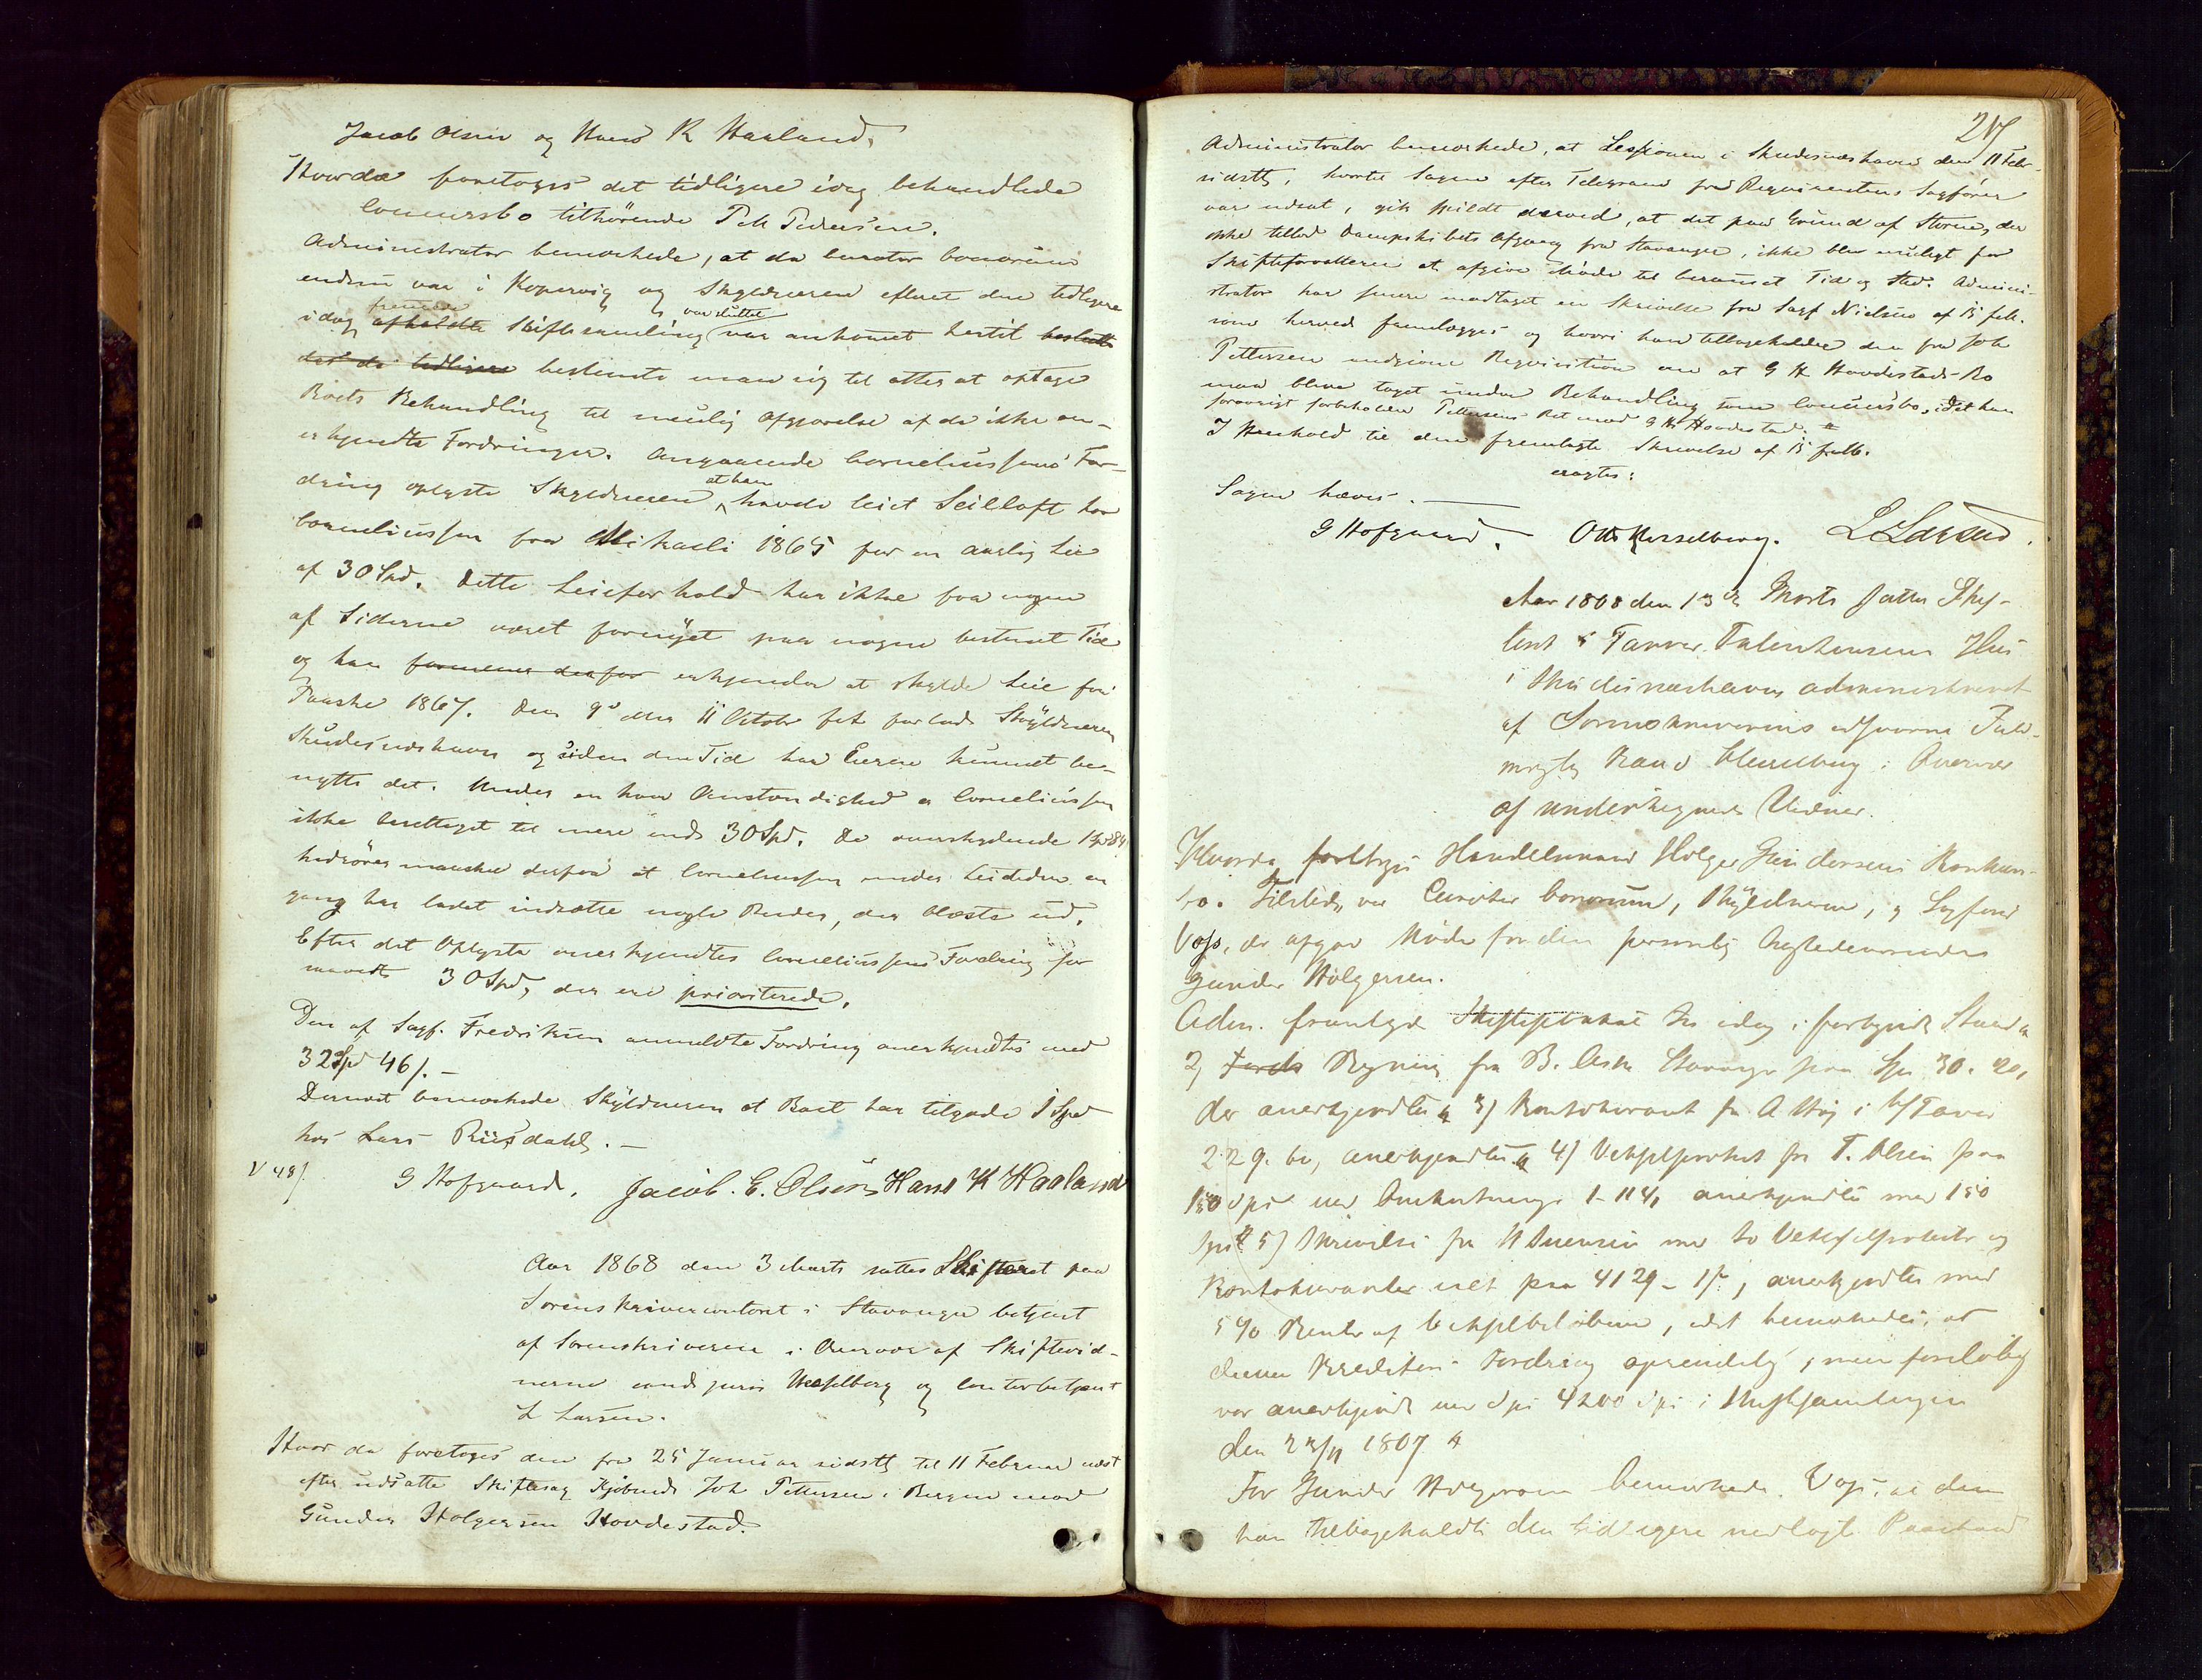 Jacob Olsen og Hans K Haaland,
Hvorda foretoges det tidligere idag behandlede
Concursbo tilhörende T Pedersen.
Administrator bemærkede, at da curator bonorum
endnu var i Kopervig og Skyldneren efteret den tidligere
idag afholdte Skiftesamling var sluttet var ankommet hertil
det de tidligere bestemte man sig til atter at optage
Boets Behandling til mulig Afgjørelse af de ikke an-
erkjendte Fordringer. Angaaende Corneliussens For-
dring oplyste Skyldneren, at han havde leiet Seilloft hos
Corneliussen fra Mikaeli 1865 for en aarlig Leie
af 30 Spd. Dette Leieforhold har ikke fra nogen
af Siderne været fornyet paa nogen bestemt Tid
og han formener derfor erkjender at skylde Leie fra
Paaske 1867. Den 9de eller 11 Octobr f.A. forlod Skyldneren
Skudesneshavn og siden den Tid har Eieren kunnet be-
nytte det. Under enhver Omstændighed er Corneliussen
ikke berettiget til mere end 30 Spd. De overskydende
hidrører maaske derfra at Corneliussen under Leietiden en
gang har ladet indsætte nogle Ruder, der blæste ud.
Efter det Oplyste anerkjendtes Corneliussens Fordring for
30 Spd, der ere prioriterede.
Den af Sagf. Fredriksen anmeldte Fordring anerkjendtes med
32 Spd 46 s. –
Dernæst bemærkede Skyldneren at Boet har tilgode 1 Spd
hos Lars Riisdahl. –
V 48 s.
G Hofgaard. Jacob. E. Olsen Hans K Haaland
Aar 1868 den 3 Marts sattes Skifteret paa
Sorenskrivercontoret i Stavanger betjent
af Sorenskriveren i Overvær af Skiftevid-
nerne cand juris Hesselberg og Contorbetjent
L Larsen.
Hvor da foretoges den fra 25 Januar sidstl til 11 Februar næst
efter udsatte Skiftesag Kjøbmd. Joh Pettersen i Bergen mod
Gunder Holgersen Hovdestad.
217
Administrator bemærkede, at Sessionen i Skudesneshavn den 11 Febr.
sidstl, hvortil Sagen efter Telegram fra Requirentens Sagfører
var udsat, gik spildt derved, at det paa Grund af Storm, der
ikke tillod Dampskibets Afgang fra Stavanger, ikke blev muligt for
Skifteforvalteren at afgive Møde til berammet Tid og Sted. Admini-
strator har senere modtaget en Skrivelse fra Sagf Nielsen af 13 feb.
som herved fremlægges og hvori han tilbagekalder den fra Joh
Pettersen indgivne Requisition om at G H Hovdestads Bo
maa blive taget under Behandling som Concursbo, idet han
forøvrigt forbeholder Pettersens Ret mod G H Hovdestad.
I Henhold til den fremlagte Skrivelse af 13 feb.
eragtes:
Sagen hæves. –
G Hofgaard. Otto Hesselberg. L Larsen.
Aar 1868 den 13de Marts sattes Skif-
teret i Farver Halvorsens Hus
i Skudesneshavn administreret
af Sorenskriverens edsvorne Fuld-
mægtig Hesselberg i Overvær
af undertegnede Vidner.
Hvorda foretoges Handelsmand Holger Gundersens Konkurs-
bo. Tilstede var Curator bonorum, Skyldneren, og Sagfører
Voss, der afgav Møde for den personlig tilstedeværende
Gunder Holgersen.
Adm. fremlagde
2, Regning fra B. Olsen Stavanger paa Spd 30. 20,
der anerkjendtes 3) Kontokurant fra A Høj i
229. anerkjendtes 4) Vexelprotest fra T. Olsen paa
150 Spd med Omkostninger 1-114, anerkjendtes med 150
Spd 5) Skrivelse fra H Svensen med to Vexelprotester og
Kontokuranter ialt paa 4129 – 1 s., anerkjendtes med
5 % Renter af Vexelbeløbene, idet bemærkedes, at
denne Kreditors Fordring oprindelig, men foreløbig
var anerkjendt med Spd 4200 Spd i Skiftesamlingen
den 23/11 1867
For Gunder Holgersen bemærkede Voss, at denne
han tilbagekaldte den tidligere nedlagte Paastand